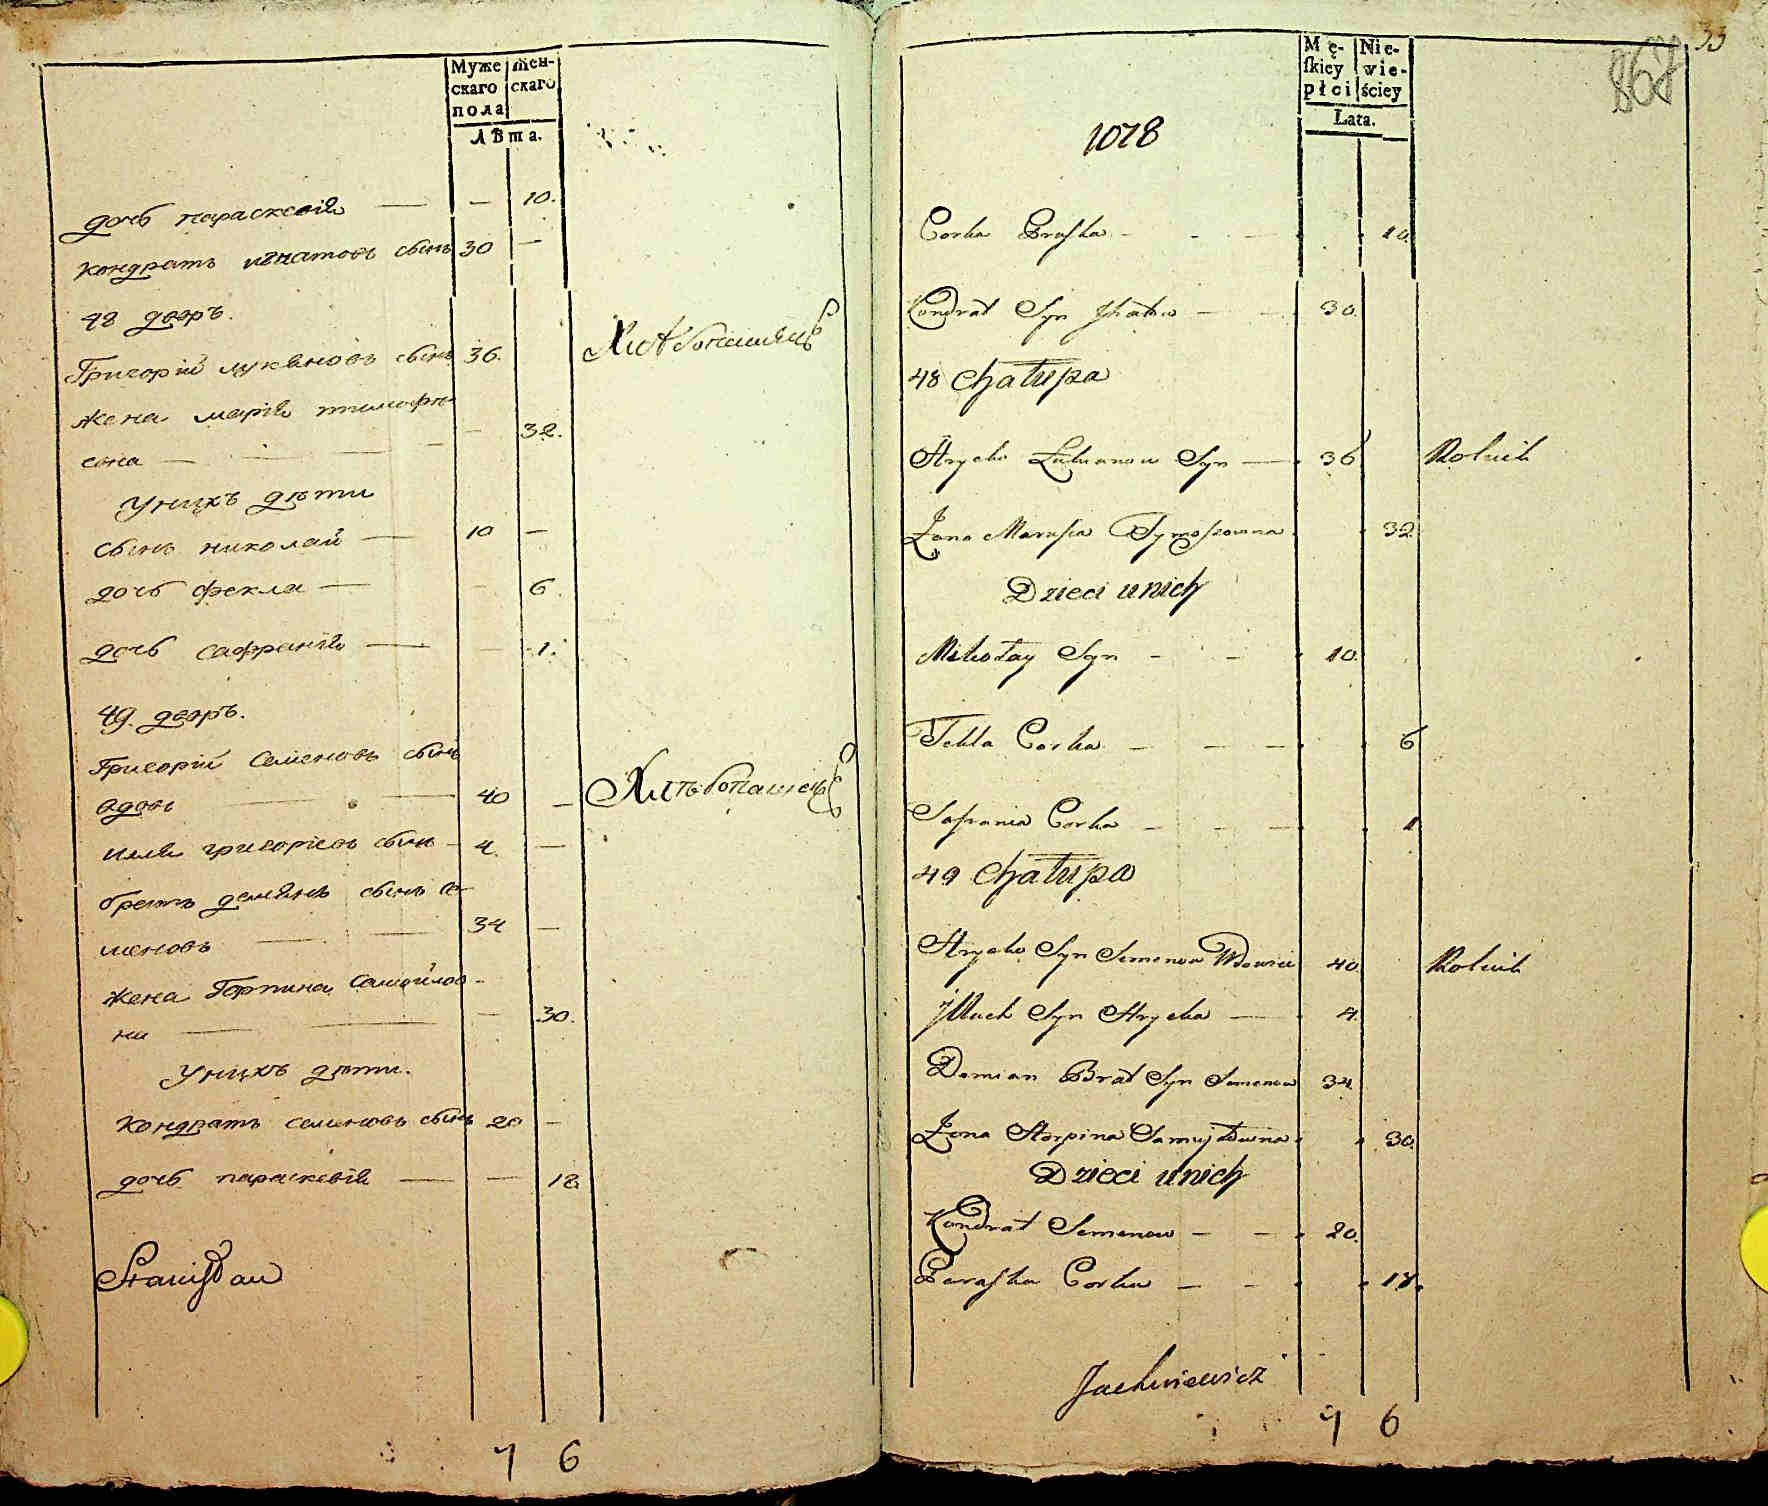 Муже скаго пола
Жен- скаго
Лѣта.
дочь параскевія — — 10.
кондратъ игнатовъ сынъ 30 —
48 дворъ.
Григорій лукяновъ сынъ 36. Хлѣбопашецъ
жена марія тимофѣ-
евна — — — — 32.
У нихъ дѣти
сынъ николай — 10 —
дочь фекла — — 6.
дочь сафранія — — 1.
49. дворъ.
Григорій Семеновъ сынъ
вдовъ — — 40 — Хлѣбопашецъ
илія григоріевъ сынъ — 4. —
братъ демянъ сынъ се-
меновъ — — 34 —
жена Горпина Самойлов-
на — — — 30.
У нихъ дѣти.
кондратъ семеновъ сынъ 20 —
дочь параскевія — — 18
Stanisław
7 6
33
868
Mę- skiey płci
Nie- wie- ściey
Lata.
1078
Corka Praska - - — 10.
Kondrat Syn Jhatow — — 30.
48 Chałupa
Hryćko Lukianow Syn — 36 Rolnik
Żona Marusia Tymoszowna 32
Dzieci unich
Mikołay Syn - - - 10.
Tekla Corka — — — 6
Safrania Corka — — — 1
49 Chałupa
Hryćko Syn Semenow Wdowiec 40 Rolnik
Jlluch Syn Hryćka — 4.
Demian Brat Syn Semenow 34.
Żona Horpina Samuyłowna 30
Dzieci unich
Kondrat Semenow — — 20.
Paraska Corka — — - 18.
Jachniewicz
7 6